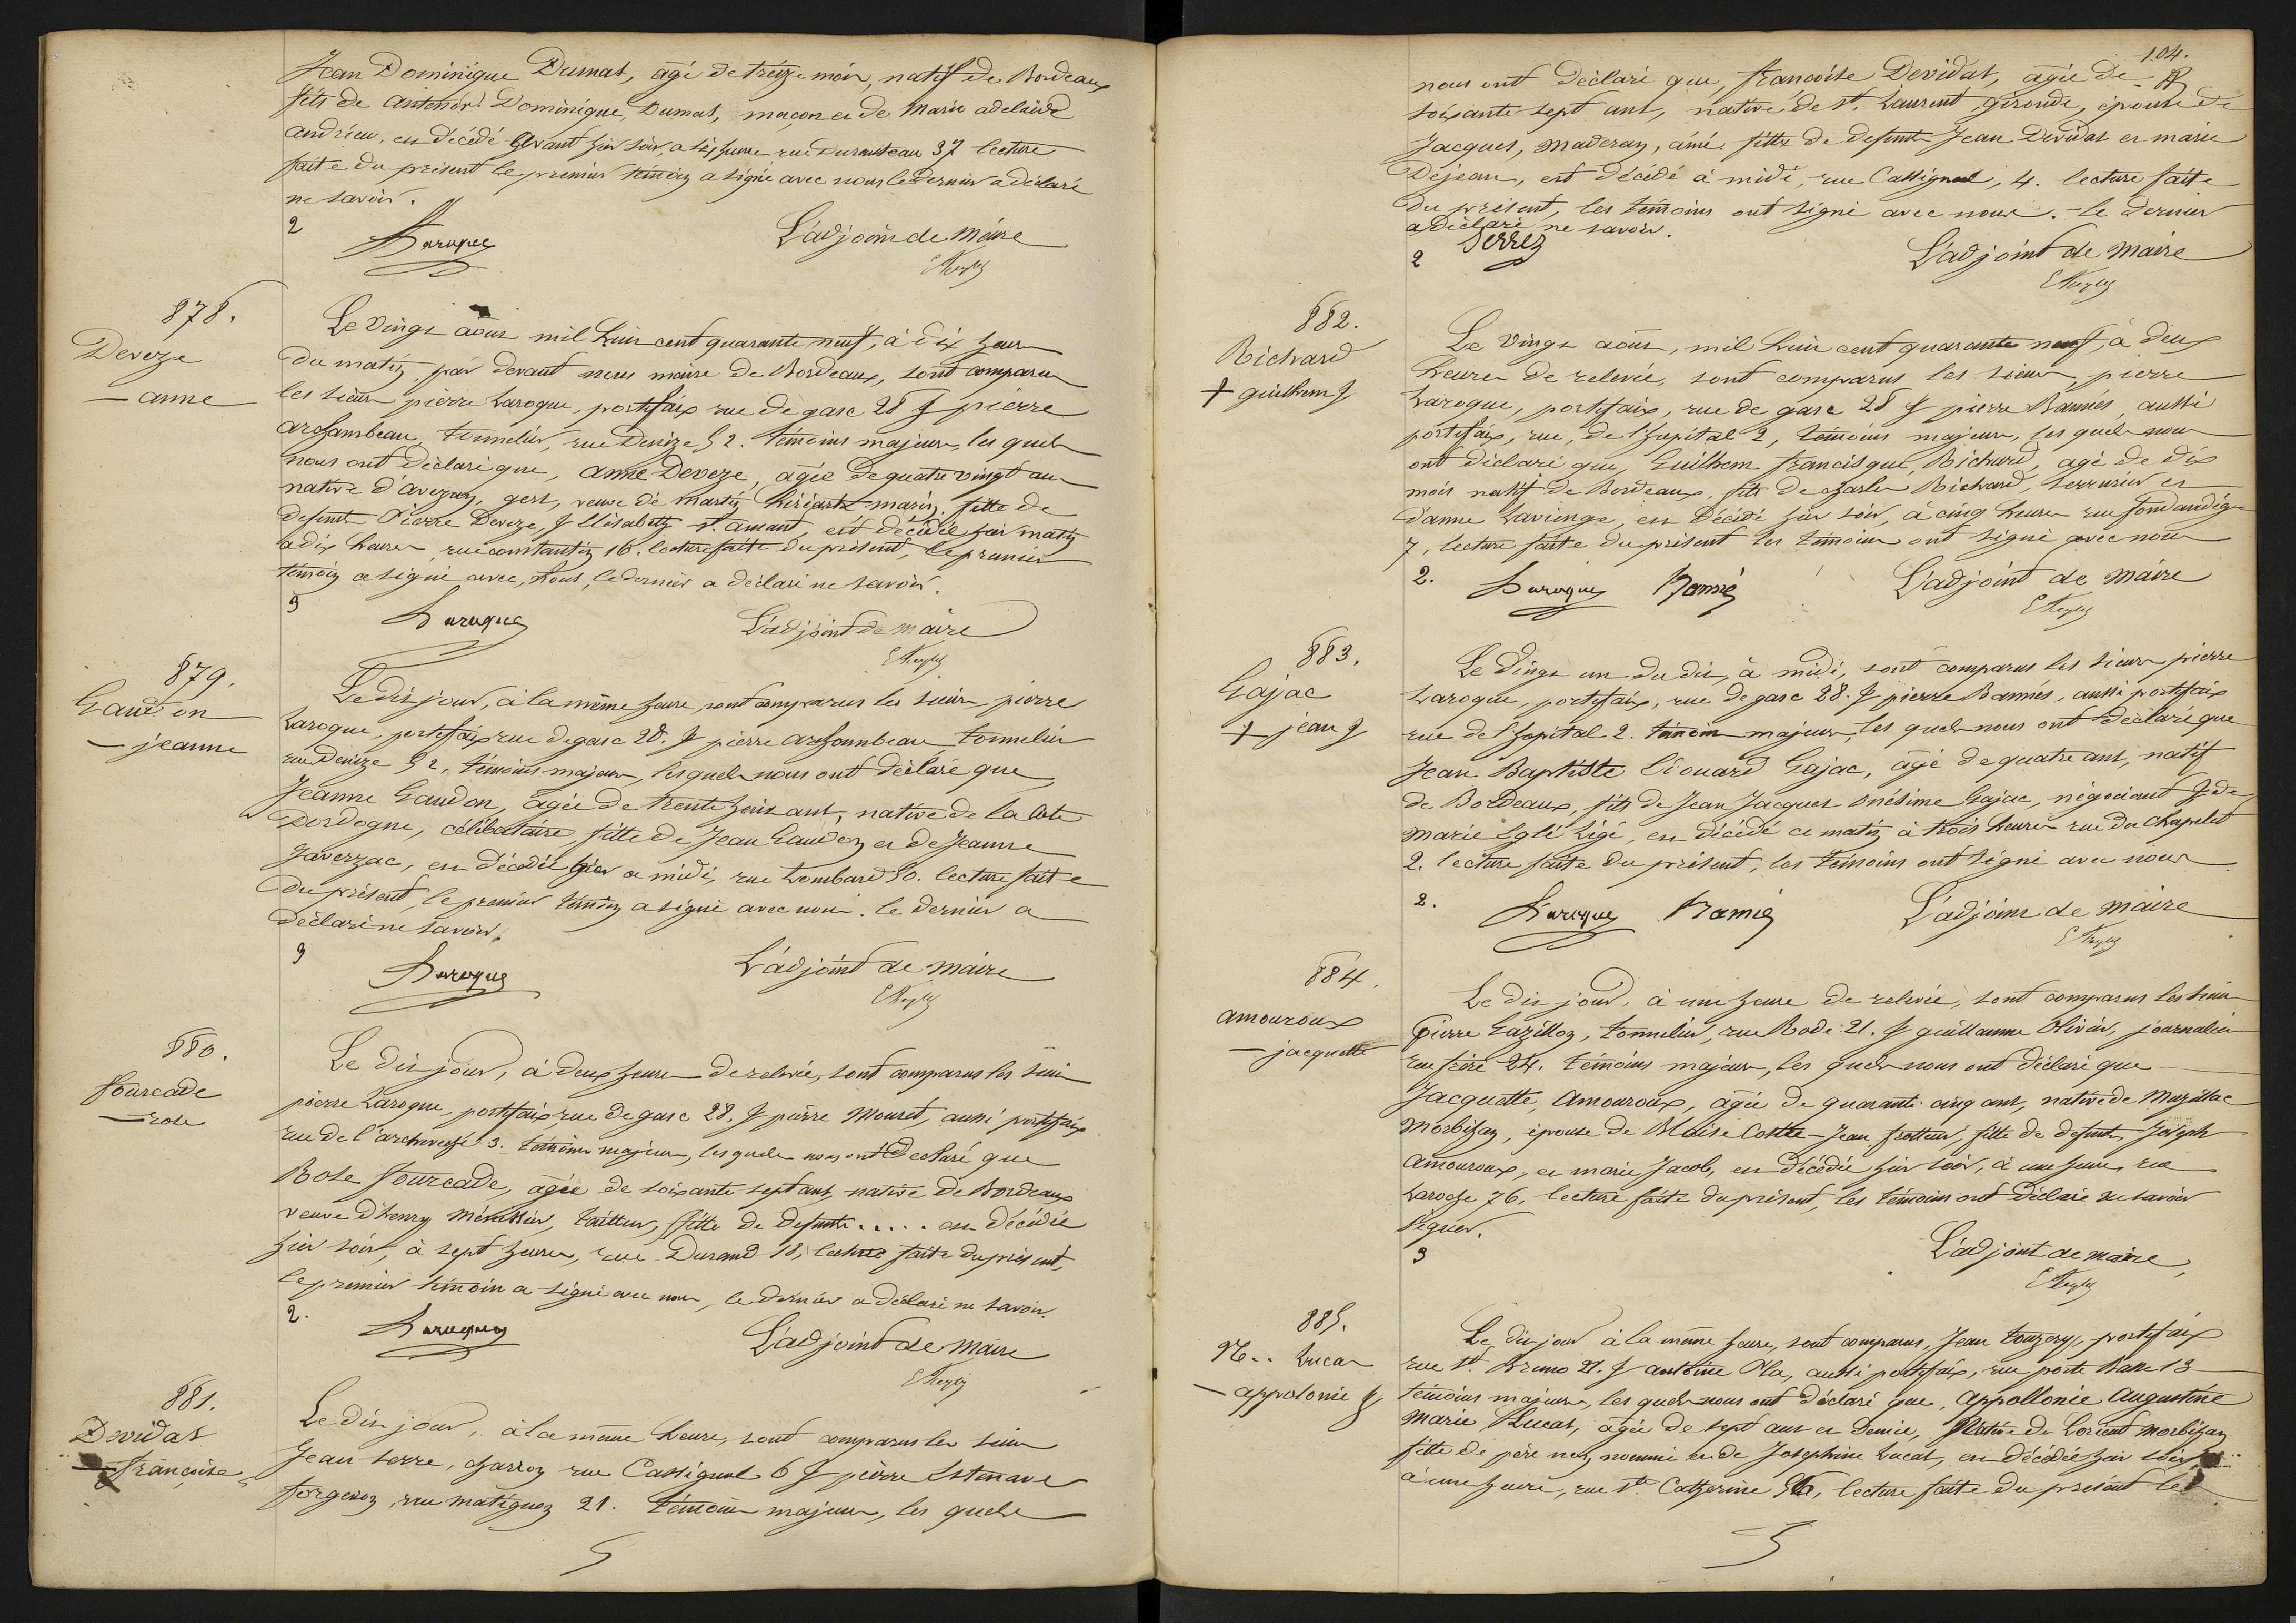 Jean Dominique Dumas, âgé de treize mois, natif de Bordeaux
fils de Antenor Dominique, Dumas, maçon et de Marie adelaide
andrieu, est décédé avant hier soir, a six heures rue Duranteau 37 lecture
faite du présent le premier témoin a signé avec nous le dernier a déclaré
ne savoir.
2
Laroque
L'adjoint de Maire
878.
Deveze
— anne
Le vingt août mil huit cent quarante neuf, à dix heures
du matin, par devant nous maire de Bordeaux, sont comparus
les sieurs pierre Laroque, portefaix rue de gasc 28 & pierre
archambeau, tonnelier, rue Denize 52. témoins majeurs, les quels
nous ont déclaré que, anne Deveze, âgée de quatre vingt ans
native d'avezan, gers, veuve de martin marin, fille de
defunts Pierre Deveze, & Elisabeth St amant, est décédée hier matin
a dix heures, rue constantin 16. lecture faite du présent, le premier
témoin a signé avec, nous, le dernier a déclaré ne savoir.
3
Laroque
L'adjoint de maire
879.
Gaudon
— jeanne
Le dit jour, à la même heure, sont comparus les sieurs pierre
Laroque, portefaix rue de gasc 28. & pierre archambeau tonnelier
rue Denize 52, témoins majeurs, lesquels nous ont déclaré que
Jeanne Gaudon, âgée de trente huit ans, native de la
Dordogne, célibataire, fille de Jean Gaudon et de Jeanne
Javerzac, est décédée hier a midi, rue Lombard 50. lecture faite
du présent, le premier témoin a signé avec nous. le dernier a
déclaré ne savoir.
3
Laroque
L'adjoint de Maire
880.
fourcade
— rose
Le dit jour, à deux heures de relevée, sont comparus les sieurs
pierre Laroque, portefaix, rue de gasc 28. & pierre Mouret, aussi portefaix
rue de l'archevêché 3. témoins majeurs, lesquels nous ont déclaré que
Rose fourcade, âgée de soixante sept ans native de Bordeaux
veuve d'henry tailleur, fille de defunts..... est décédée
hier soir, à sept heures, rue Durand 18, lecture faite du présent,
le premier témoin a signé avec nous, le dernier a déclaré ne savoir.
2.
Laroque
L'adjoint de Maire
881.
Devidas
— françoise
Le dit jour, à la même heure, sont comparus les sieurs
Jean serre, charron rue Cassignol 6 & pierre Estenave
forgeron, rue matignon 21. témoins majeurs, les quels
104.
nous ont déclaré que, françoise Devidas, âgée de
soixante sept ans, native de st. Laurent, gironde, épouse de
Jacques, maderay, ainé, fille de defunts Jean Devidas et marie
Dejean, est décédé à midi, rue Cassignol, 4. lecture faite
du présent, les témoins ont signé avec nous. — le dernier
a déclaré ne savoir.
2
Serrez
L'adjoint de Maire
882.
Richard
+ guilhem f
Le vingt août, mil huit cent quarante neuf, à deux
heures de relevée, sont comparus les sieurs pierre
Laroque, portefaix, rue de gasc 28 & pierre Bannes, aussi
portefaix, rue, de l'hopital 2, témoins majeurs, les quels nous
ont déclaré que, Guilhem francisque, Richard, agé de dix
mois natif de Bordeaux, fils de charles Richard, serrurier et
d'anne Lavienge, est décédé hier soir, à cinq heures rue fondaudège
7, lecture faite du présent les témoins ont signé avec nous
2.
Laroque
Bannés
L'adjoint de Maire
883.
Gajac
+ jean J
Le vingt un du dit, à midi, sont comparus les sieurs pierre
Laroque, portefaix, rue de gasc 28. & pierre Bannes, aussi portefaix
rue de l'hopital 2. témoins majeurs, les quels nous ont déclaré que
Jean Baptiste Edouard Gajac, âgé de quatre ans, natif
de Bordeaux, fils de Jean Jacques Onésime Gajac, négociant & de
marie Eglé Ligé, est décédé ce matin à trois heures rue du chapelet
2. lecture faite du présent, les témoins ont signé avec nous
2.
Laroque
Bannés
L'adjoint de Maire
884.
amouroux
— jacquette
Le dit jour, à une heure de relevée, sont comparus les sieurs
Pierre Gazillon, tonnelier, rue Rode 21. & guillaume Olivier, journalier
rue frère 24. témoins majeurs, les quels nous ont déclaré que —
Jacquette, Amouroux, âgée de quarante cinq ans, native de Muzillac
morbihan, épouse de Blaise Coste-Jean frotteur, fille de defunts, Joseph
amouroux, et marie Jacob, est décédée hier soir, à une heure, rue
Laroche 76, lecture faite du présent, les témoins ont déclaré ne savoir
signer.
3
L'adjoint de maire
885.
N.. Lucas
— appolonie
Le dit jour à la même heure, sont comparus, Jean touzery, portefaix
rue st. Bruno 21. & antoine Pla, aussi portefaix, rue porte Basse 13
témoins majeurs, les quels nous ont déclaré que, appollonie Augustine
Marie Lucas, âgée de sept ans et demie, Native de Lorient morbihan
fille de père non, nommé et de Josephine Lucas, est décédée hier soir
à une heure, rue ste Catherine lecture faite du présent les